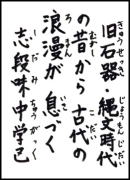 きゅうせっき じょうもんじだい
旧石器・縄文時代
むかし こだい
の昔から古代の
ろまん いき
浪漫が 息づく
しだみ ちゅうがっく
志段味中学区